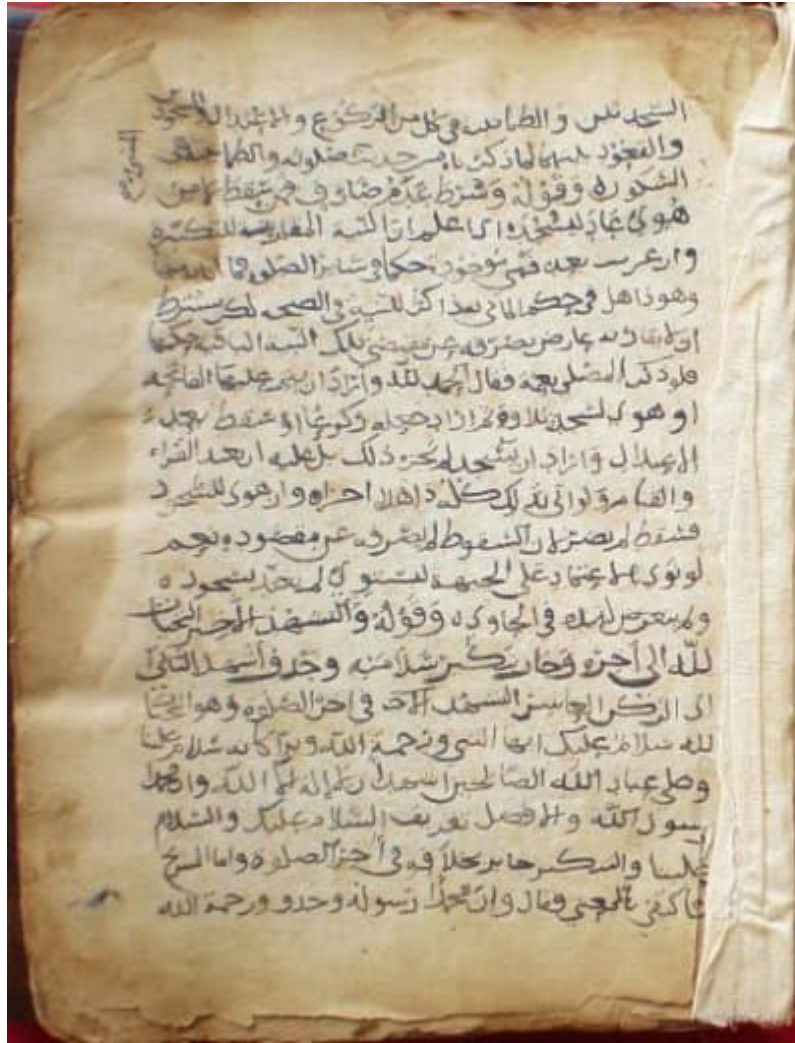 السجدتين والطمانينه في كل من الركوع والاعتدال والسجود
والقعود بينهما لما ذكرنا من حديث صلوته والطمانينه
السكون وقوله وشرط عد فرضا وفي من سقط
هوى عاد لسجده اي اعلم ان النيه المقارنه للتكبيره
وان عربت بعده فهي موجوده حكما في سائر الصلوه
وهو ذاهل في حكم الماتي بعد اكثر للنيه في الصحه لكن يشترط
ان لا يقارنه عارض يصرفه عن مقتضى تلك النيه الباقيه حكما
فلو ذكر المصلي نعمه فقال الحمد لله واراد ان يبني عليها الفاتحه
او هوى لسجده تلاوه ثم اراد جعله ركوعا او سقط بعد
الاعتدال واراد ان يسجد لم يجزه ذلك بل عليه ان يعيد القراه
والقيام ولو اتى بذلك كله ذاهلا اجزاه وان هوى للسجود
فسقط لم يضر لان السقوط لم يصرفه عن مقصوده نعم
لو نوى الاعتماد على الجبهة ليستوي لم يجز سجوده
ولم يتعرض لهذه في الحاوي وقوله والتشهد الاخير التحيات
لله الى اخره وجاز تنكير سلاميه وحذف اشهد الثاني
اي الركن العاشر التشهد الاخير في اخر الصلوه وهو التحيات
لله سلام عليك ايها النبي ورحمة الله وبركاته سلام علينا
وعلى عباد الله الصالحين اشهد ان لا إله الا الله وان محمدا
رسول الله والافضل تعريف السلام عليك والسلام
علينا والتنكير جائز بخلافه في اخر الصلوه واما
فاكتفى بالمعنى وقال وان محمدا رسوله وحدو ورحمة الله